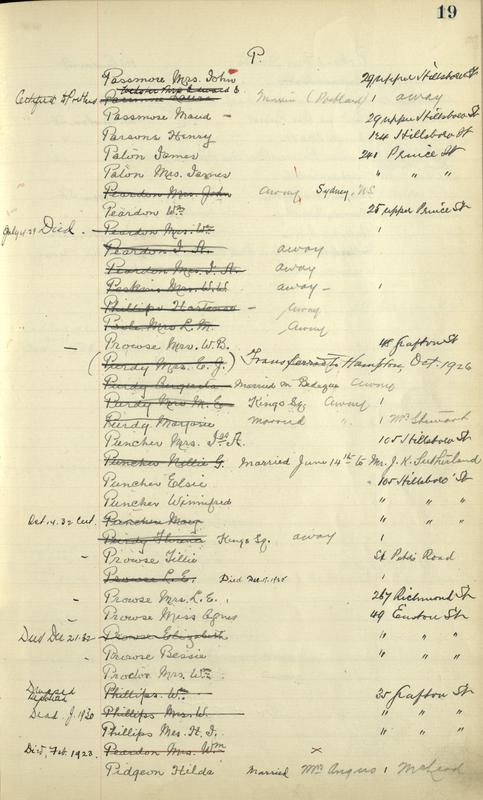 19
P.
Passmore Mrs. John 29 upper Hillsboro St
Certified to Mrs. Edward B.
Passmore Laura Married (Portland) away
Passmore Maud - 29 upper Hillsboro St
Parsons Henry 124 Hillsboro St
Paton James 240 Prince St
Paton Mrs. James " " "
Peardon Mrs. John Away Sydney, N.S.
Peardon Wm 25 upper Prince St
Died Peardon Mrs. Wm
Peardon J. A. away
Peardon Mrs. J. A. away
Perkins Mrs. W. W. away -
Phillips Hortense - Away
Mrs L. M. Away
Prowse Mrs. W. B. 48 Grafton St
(Purdy Mrs. E. J.) Transferred to Hampton, Oct. 1926
Purdy Married in Bedeque Away
Purdy Mrs M. E. Kings Sq. Away
Purdy Marjorie Married " Mr. Stewart
Puncher Mrs. Jas A. 105 Hillsboro St
Puncher Nellie G. Married June 14th to Mr. J. K. Sutherland
Puncher Elsie 105 Hillsboro St
Puncher Winnifred " " "
Oct. 14. 32 Cert. Puncher Mary " " "
Purdy Florence Kings Sq. away
- Prowse Tillie St Peters Road
Prowse L. E. Died Dec.
- Prowse Mrs. L. E. 267 Richmond St
- Prowse Miss Agnes 49 Euston St
Died Dec 21/32 Prowse Elizabeth " " "
- Prowse Bessie " " "
Proctor Mrs. Wm
Phillips Wm 25 Grafton St
Dead. J. 1930 Phillips Mrs. W. " " "
Phillips Mrs. H. J. " " "
Died, Feb. 1928. Peardon Mrs. Wm x
Pidgeon Hilda Married Mr. Angus McLeod